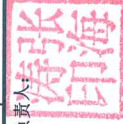 责人:
张海
涛印